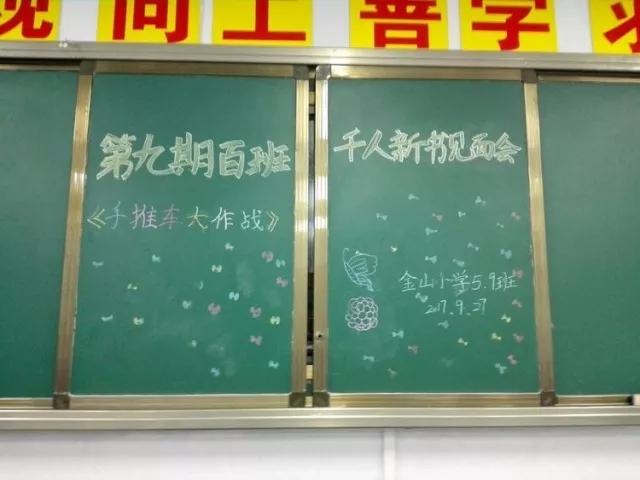 向上善学
第九期百班
千人新书见面会
《手推车大作战》
金山小学5.9班
2017.9.27